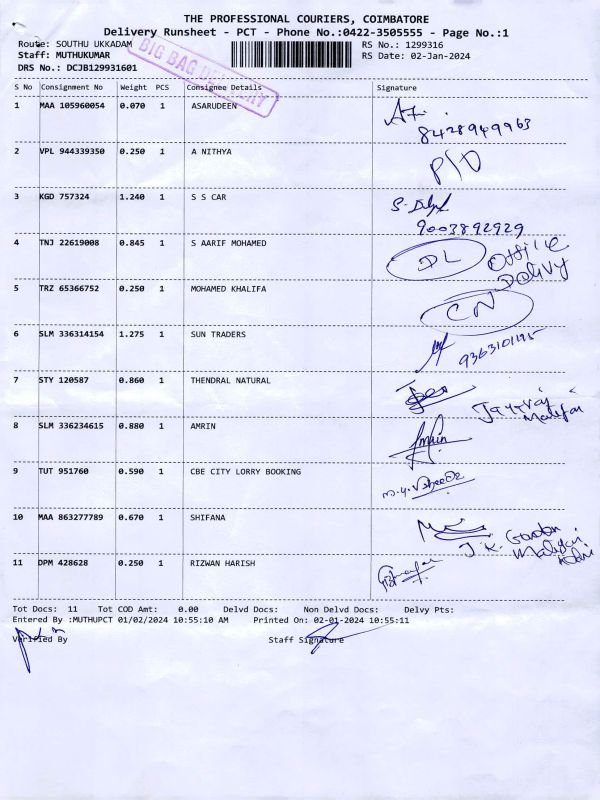 THE PROFESSIONAL COURIERS, COIMBATORE
Delivery Runsheet - PCT - Phone No.:0422-3505555 - Page No.:1
Route: SOUTHU UKKADAM
RS No.: 1299316
Staff: MUTHUKUMAR
RS Date: 02-Jan-2024
DRS No.: DCJB129931601
BIG BAG DELIVERY
S No Consignment No Weight PCS Consignee Details Signature
1 MAA 105960054 0.070 1 ASARUDEEN
8428949963
2 VPL 944339350 0.250 1 A NITHYA P/D
3 KGD 757324 1.240 1 S S CAR
9003892929
4 TNJ 22619008 0.845 1 S AARIF MOHAMED DL Office
5 TRZ 65366752 0.250 1 MOHAMED KHALIFA CN
6 SLM 336314154 1.275 1 SUN TRADERS
7 STY 120587 0.860 1 THENDRAL NATURAL
8 SLM 336234615 0.880 1 AMRIN
9 TUT 951760 0.590 1 CBE CITY LORRY BOOKING
10 MAA 863277789 0.670 1 SHIFANA
11 DPM 428628 0.250 1 RIZWAN HARISH
Tot Docs: 11 Tot COD Amt: 0.00 Delvd Docs: Non Delvd Docs: Delvy Pts:
Entered By :MUTHUPCT 01/02/2024 10:55:10 AM Printed On: 02-01-2024 10:55:11
Verified By Staff Signature